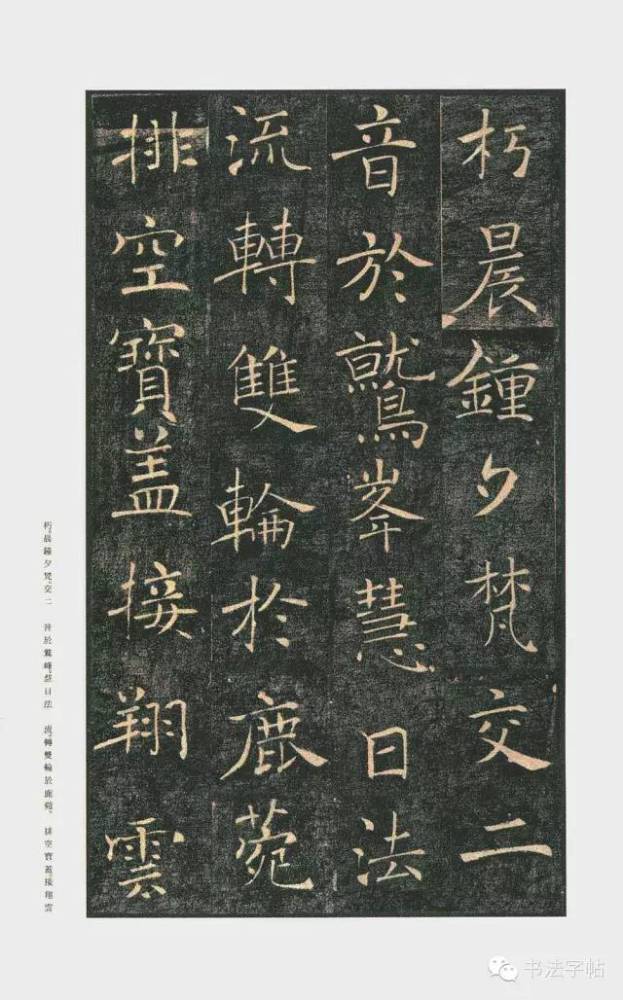 朽晨鍾夕梵交二
音於鷲峯慧日法
流轉雙輪於鹿菀
排空寶盖接翔雲
朽。晨鐘夕梵。交二 音於鷲峰。慧日法 流。轉雙輪於鹿菀。 排空寶蓋。接翔雲
书法字帖